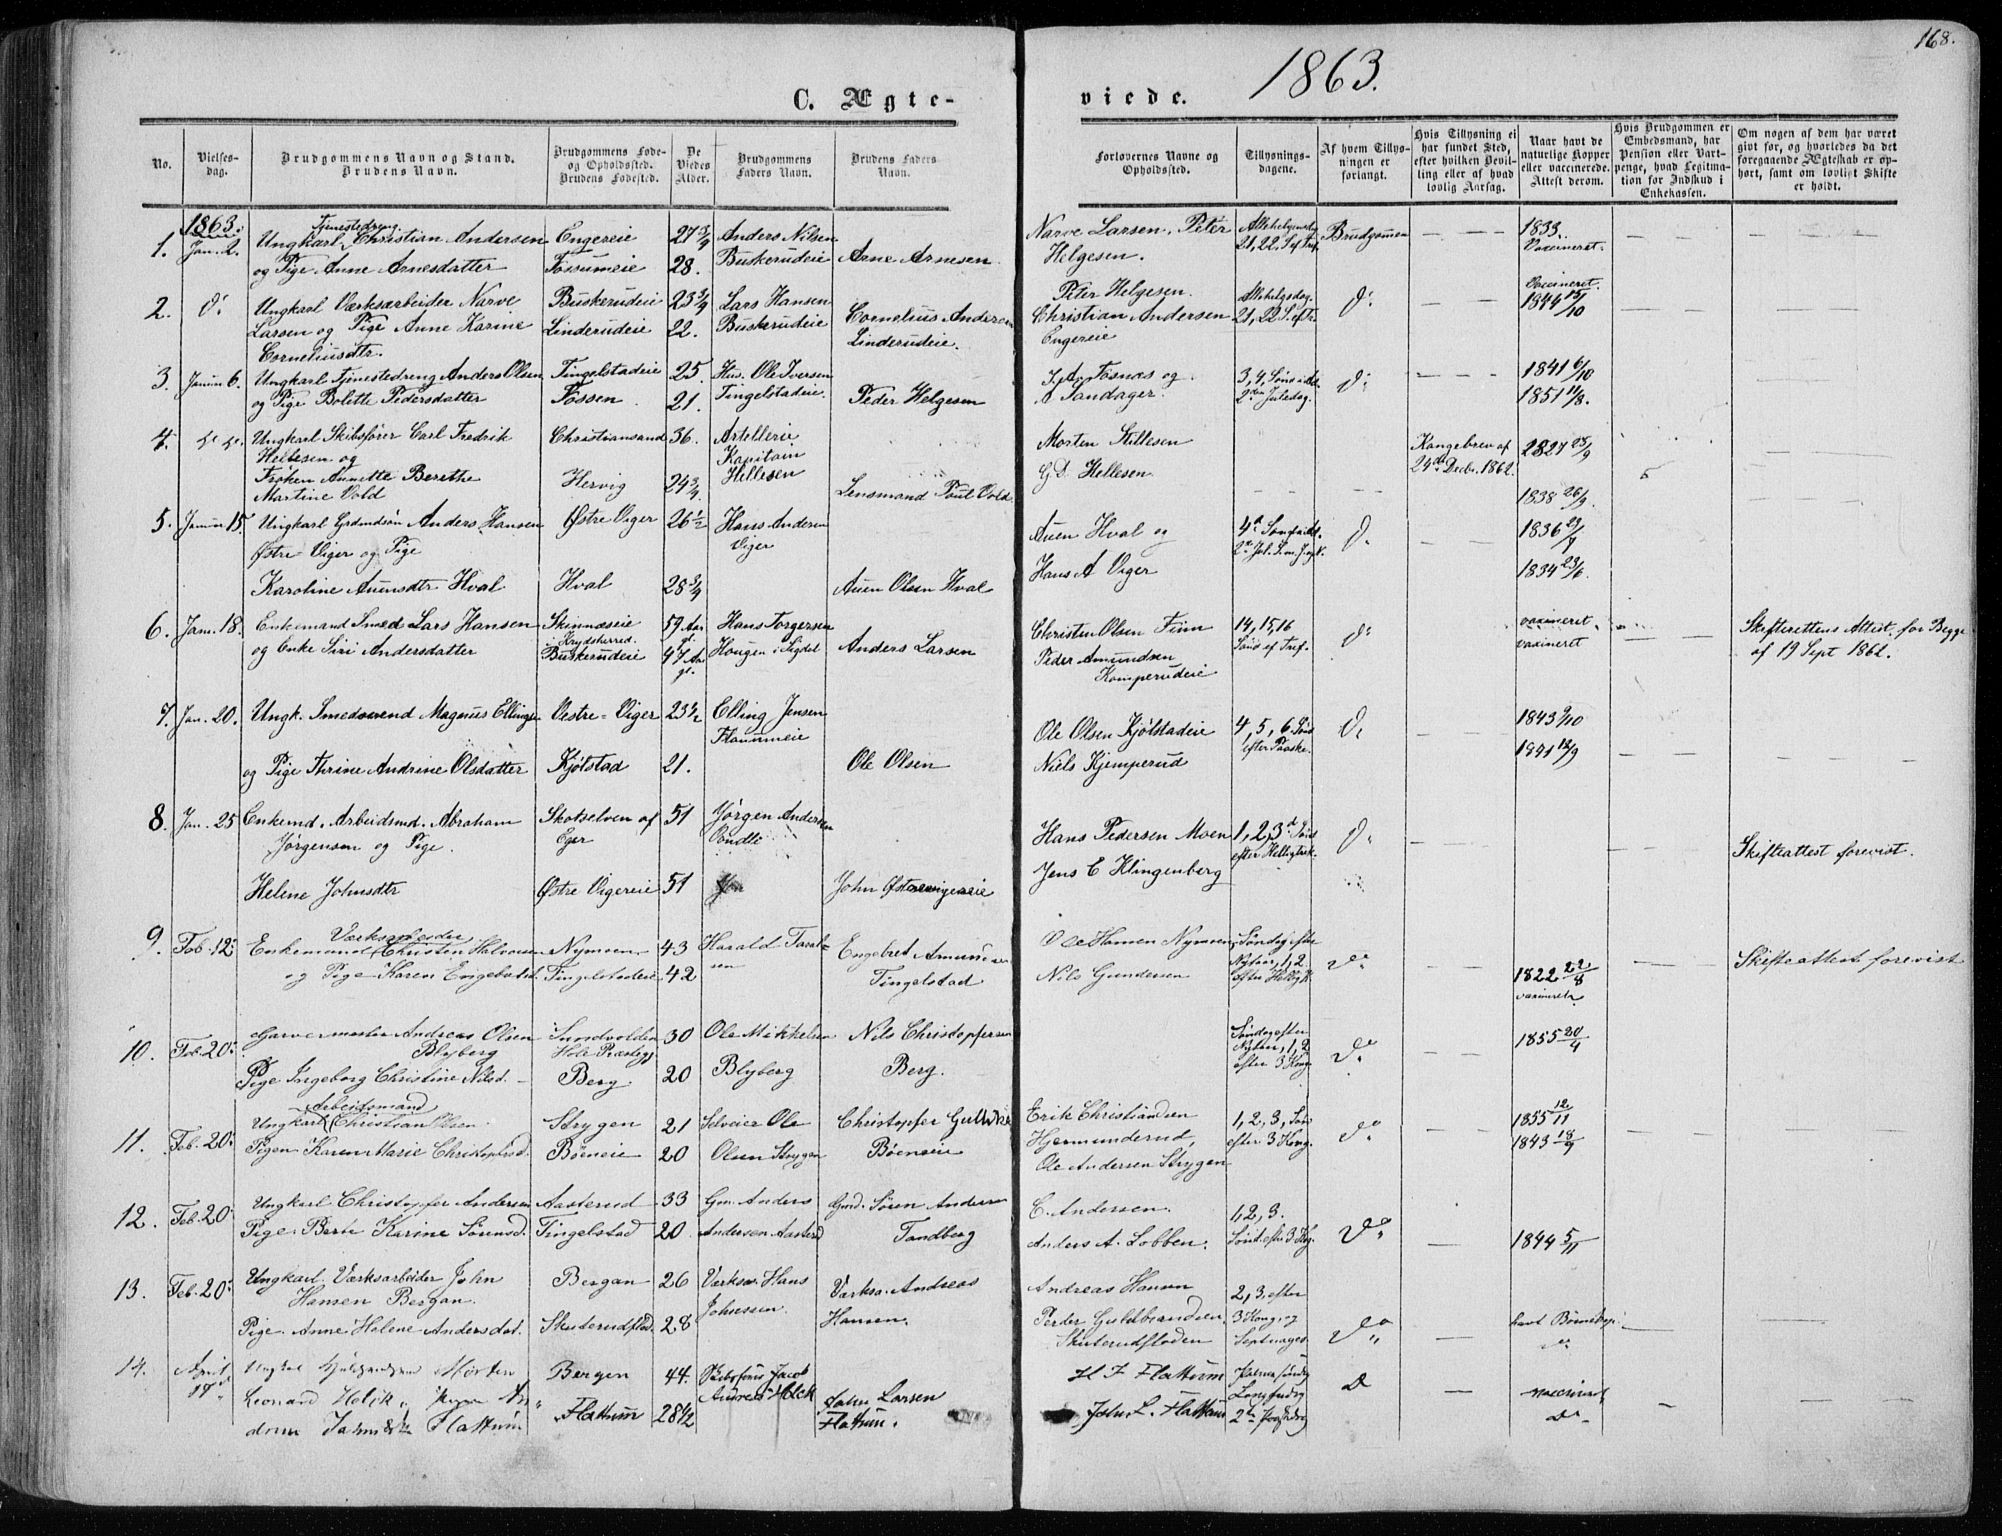 168.
1863.
C. Ægte-
viede.
No.
Vielses-
dag.
Brudgommens Navn og Stand.
Brudens Navn.
Brudgommens Føde-
og Opholdssted.
Brudens Fødested.
De
Viedes
Alder.
Brudgommens
Faders Navn.
Brudens Faders
Navn.
Forlovernes Navne og
Opholdssted.
Tillysnings-
dagene.
Af hvem Tillys-
ningen er
forlangt.
Hvis Tillysning ei
har fundet Sted,
efter hvilken Bevil-
ling eller af hvad
lovlig Aarsag.
Naar havt de
naturlige Kopper
eller vaccinerede.
Attest derom.
Hvis Brudgommen er
Embedsmand, har
Pension eller Vart-
penge, hvad Legitima-
tion for Indskud i
Enkekassen.
Om nogen af dem har været
givt før, og hvorledes da det
foregaaende Ægteskab er op-
hørt, samt om lovligt Skifte
er holdt.
1863.
1. Jan. 2. Ungkarl Tjenestedreng Christian Andersen Engereie 27 3/4 Anders Nilsen
og Pige Anne Arnesdatter Fossumeie 28. Buskerudeie Arne Arnesen
Narve Larsen. Peter 21, 22. S. ef Tref. Brudgomen 1833.
Helgesen. Vaccineret.
2. Do Ungkarl Værksarbeider Narve Buskerudeie 23 3/4 Lars Hansen
Larsen og Pige Anne Karine Linderudeie 22. Buskerudeie Cornelius Andersen
Corneliusdtr. Linderudeie.
Peter Helgesen. Allehelgsdag. Do Vaccineret.
Christian Andersen 21, 22. S. eftr. 1844 15/10
Engereie
3. Januar 6. Ungkarl Tjenestedreng Anders Olsen Tingelstadeie 25. Hus. Ole Iversen
og Pige Bolette Pedersdatter Fossen 21. Tingelstadeie. Peder Helgesen
Fosnæs og 3, 4, Sønd i Ad. Do 1841 6/10
Sandager. 2den Juledag. 1851 11/8.
4. Ungkarl Skibsfører Carl Fredrik Christiansand 36. Artellerie
Hellesen og Kapitain
Frøken Annette Berethe Hervig 24 3/4 Hellesen
Martine Vold Lensmand Poul Vold
Morten Stillesen Kongebrev af 2827 23/9
G. D. Hellesen 24de Decbr. 1862.
1838 26/9.
5. Januar 15. Ungkarl Grdmdsøn Anders Hansen Østre Viger 26 1/2 Hans Andersen
Østre Viger og Pige Viger
Karoline Auensdtr Hval Hval 28 3/4 Auen Olsen Hval
Auen Hval og Do 1836
Hans A Viger 1834 23/6.
6. Janr. 18. Enkemand Smed Lars Hansen Skinnæseie 59 Aar Hans Torgersen
i Krydsherred. gl.
og Enke Siri Andersdatter Buskerudeie 47 Aar gl. Hougen i Sigdal Anders Larsen
Christen Olsen Finn 14, 15, 16 Do vaxineret. Skifterettens Attest for Begge
Peder Amundsen Sønd ef Tref. vaxineret af 19 Sept 1862.
Komperudeie
7. Jan. 20. Ungk. Smedsvend Magnus Ellingsen Vestre-Viger 23 1/2 Elling Jensen
og Pige Thrine Andrine Olsdatter Kjølstad 21. Ole Olsen
Ole Olsen Kjølstadeie 4, 5, 6 Sønd Do 1843 9/10
Niels Kjemperud efter Paaske. 1841 12/9
8. Jan. 25 Enkemd. Arbeidsmd. Abraham Skotselven af 51 Jørgen Andersen
Jørgensen og Pige. Eger
Helene Johnsdtr Østre Vigereie 51 John Østrevigereie
Hans Pedersen Moen 1, 2, 3d Sønd Do Skifteattest forevist.
Jens E Klingenberg efter Helligtrek.
9. Feb. 12. Enkemand Værksarbeider Christen Halvorsen Nymoen 43 Harald
og Pige Karen Engebretsd. Tingelstadeie 42 Engebret Amundsen
Tingelstad
Ole Hansen Nymoen Søndag efter Do Skifteattest forevist
Nils Gundersen Nytaar, 1, 2 1822 22/8
efter Helligk. vaxineret.
10. Feb. 20. Garvermester Andreas Olsen Sundvolden 30 Ole Mikkelsen Nils Christophersen
Blyberg Hole Præstegj.
Pige Ingeborg Christine Nilsd. Berg. 20 Blyberg Berg.
Søndag efter Do 1855 20/4
Nytaar, 1, 2
efter 3 Kong.
11. Feb. 20. Arbeidsmand
Ungkarl Christian Olsen. Strygen 21 Selveier Ole Christopher
Pigen Karen Marie Christophersd. Bøeneie 20 Olsen Strygen Bøeneie
Erik Christiansen 1, 2, 3, Sønd Do 1855 12/11
Hjermunderud, efter 3 Kong. 1843 18/9
Ole Andersen Strygen
12. Feb. 20. Ungkarl Christopher Andersen Aasterud 33 Gm. Anders Gmd. Søren Andersen
Pige Berte Karine Sørensd. Tingelstad 20 Andersen Aasterud Tandberg
E. Andersen. 1, 2, 3. Do 1844 5/11
Anders A. Lobben. Sønd. efter 3 Kg.
13. Feb. 20. Ungkarl. Værksarbeider John Bergan 26 Værksa. Hans Værksa. Andreas
Hansen Bergan.
Pige. Anne Helene Andersdat. Skuterudflod. 28 Johnsen. Hansen.
Andreas Hansen 2, 3, efter Do havt Børnekop.
Peder Guldbrandsen 3 Kong. og do
Skuterudfloden Septuages.
14. April 17de Morten Bergen 44. Skibsføres Jacob
Leonard Holck, Andreas Holck John Larsen
Flattum Flattum 28 1/2 Flattum.
H. J. Flattum Palmesøndg Do vaccineret
John L. Flattum 2den Paaskedag do